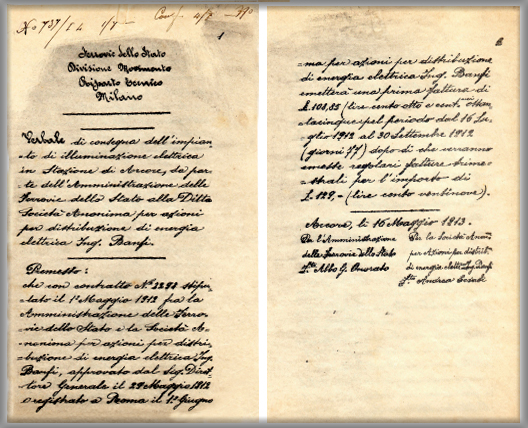 N° 737/
1
Ferrovie dello Stato
Divisione Movimento
Riparto Tecnico
Milano
Verbale di consegna dell'impian-
-to di illuminazione elettrica
in Stazione di Arcore, da par-
te dell'Amministrazione delle
Ferrovie dello Stato alla Ditta
Società Anonima per azioni
per distribuzione di energia
elettrica Ing. Banfi.
Premesso:
che con contratto N° 3290 stipu-
-lato il 1° Maggio 1912 fra la
Amministrazione delle Ferro-
vie dello Stato e la Società A-
nonima per azioni per distri-
-buzione di energia elettrica Ing.
Banfi, approvato dal Sig. Diret-
tore Generale il 29 Maggio 1912
e registrato a Roma il 1° Giugno
2
-ma per azioni per distribuzione
di energia elettrica Ing. Banfi
emetterà una prima fattura di
£. 108,85 (lire cento otto e cent. ottan-
tacinque) pel periodo dal 16 Lu-
-glio 1912 al 30 Settembre 1912
(giorni 77) dopo di che verranno
emesse regolari fatture trime-
-strali per l'importo di
£. 129,- (lire cento ventinove).
Arcore, li 16 Maggio 1913.
Per l'Amministrazione
delle Ferrovie dello Stato
F.to Abbo G. Onorato
Per la Società Anon.
per Azioni per distrib.
di energia elett. Ing. Banfi
F.to Andrea